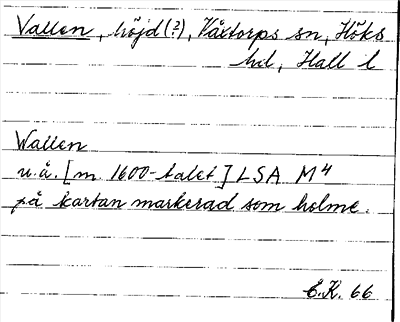 Vallen, höjd (?), Våxtorps sn, Höks
hd, Hall l
Wallen
u.å. [m 1600-talet] LSA M4
på kartan markerad som holme.
C.K. 66